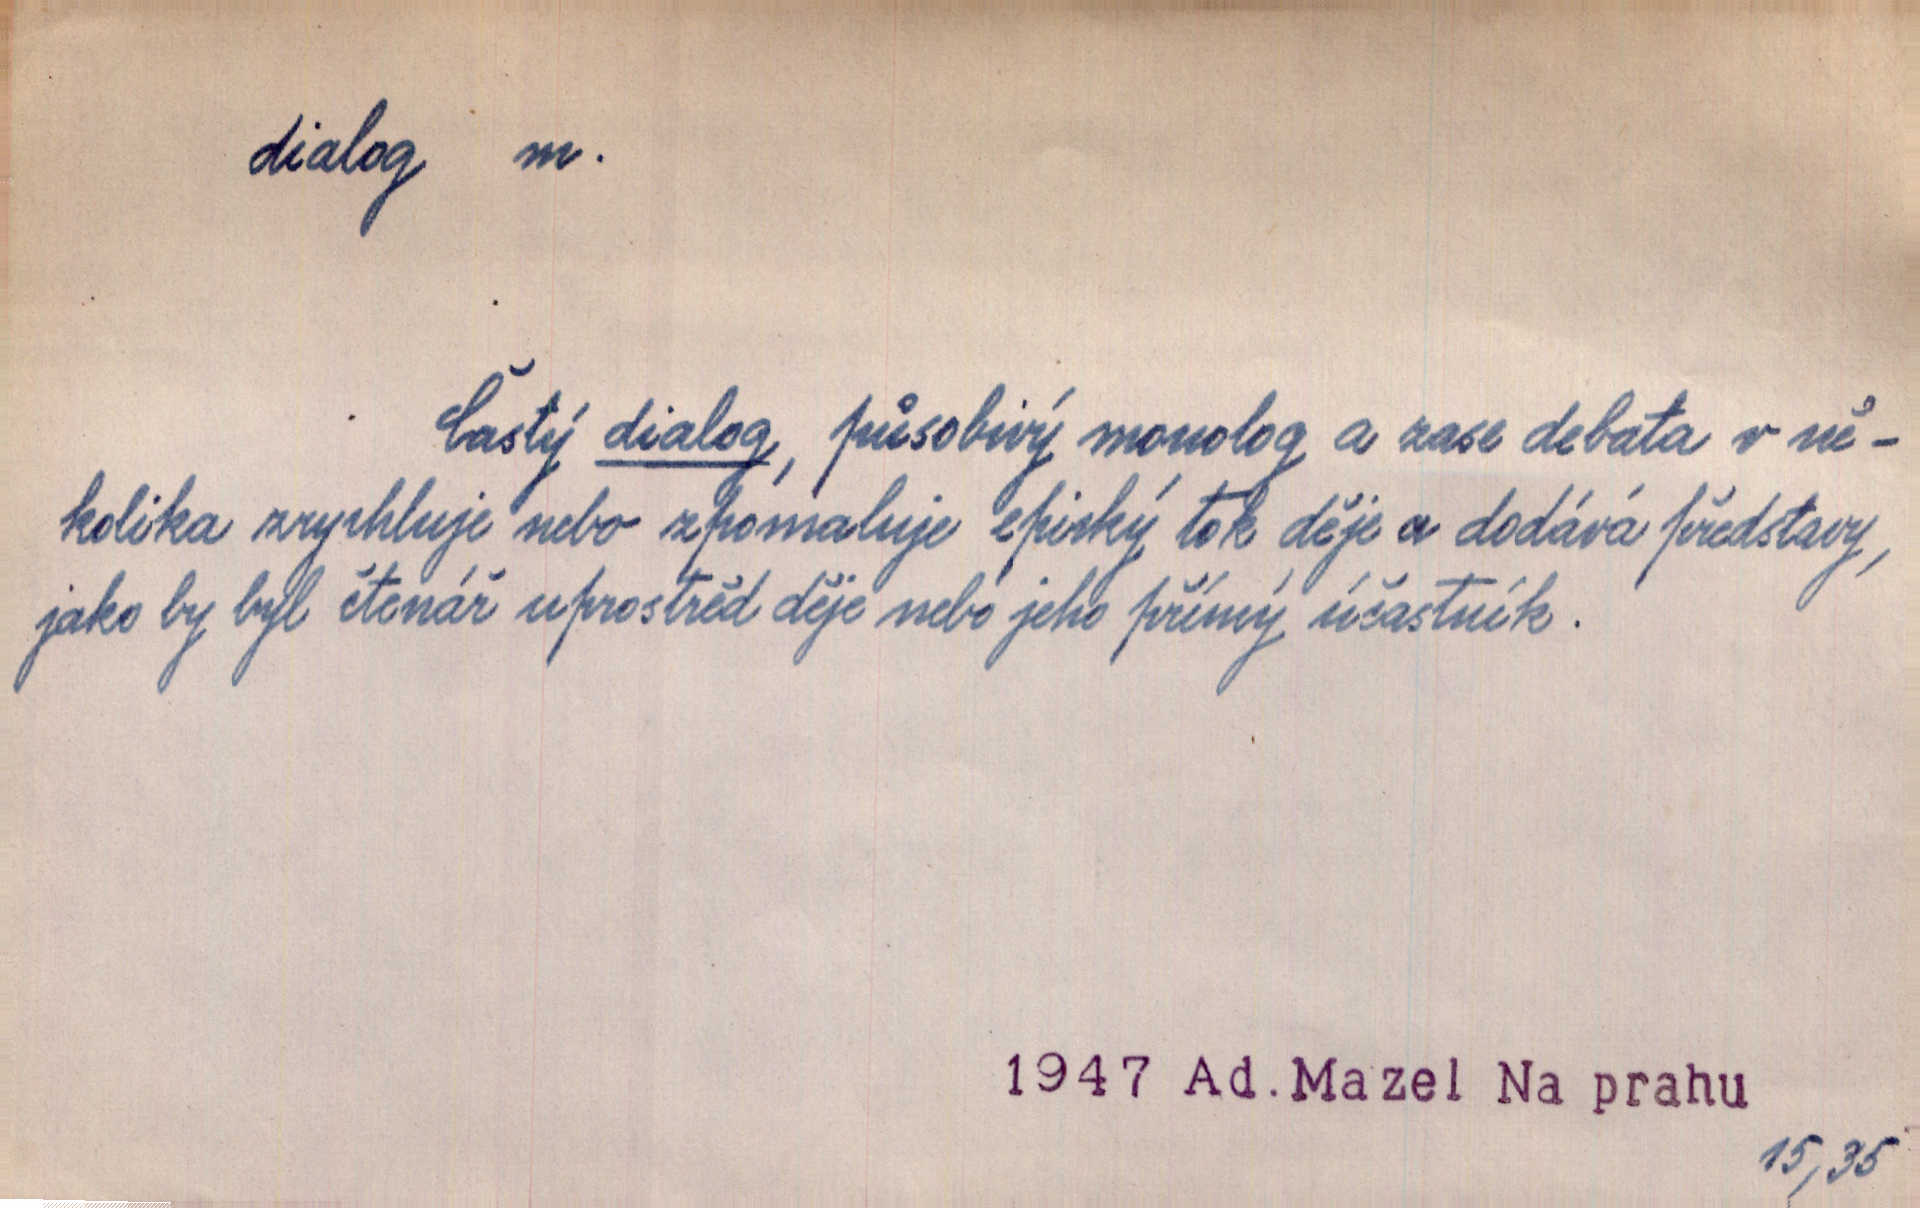 dialog m.
Častý dialog, působivý monolog a zase debata v ně-
kolika zrychluje nebo zpomaluje epický tok děje a dodává představy,
jako by byl čtenář uprostřed děje nebo jeho přímý účastník.
1947 Ad.Mazel Na prahu
15,35